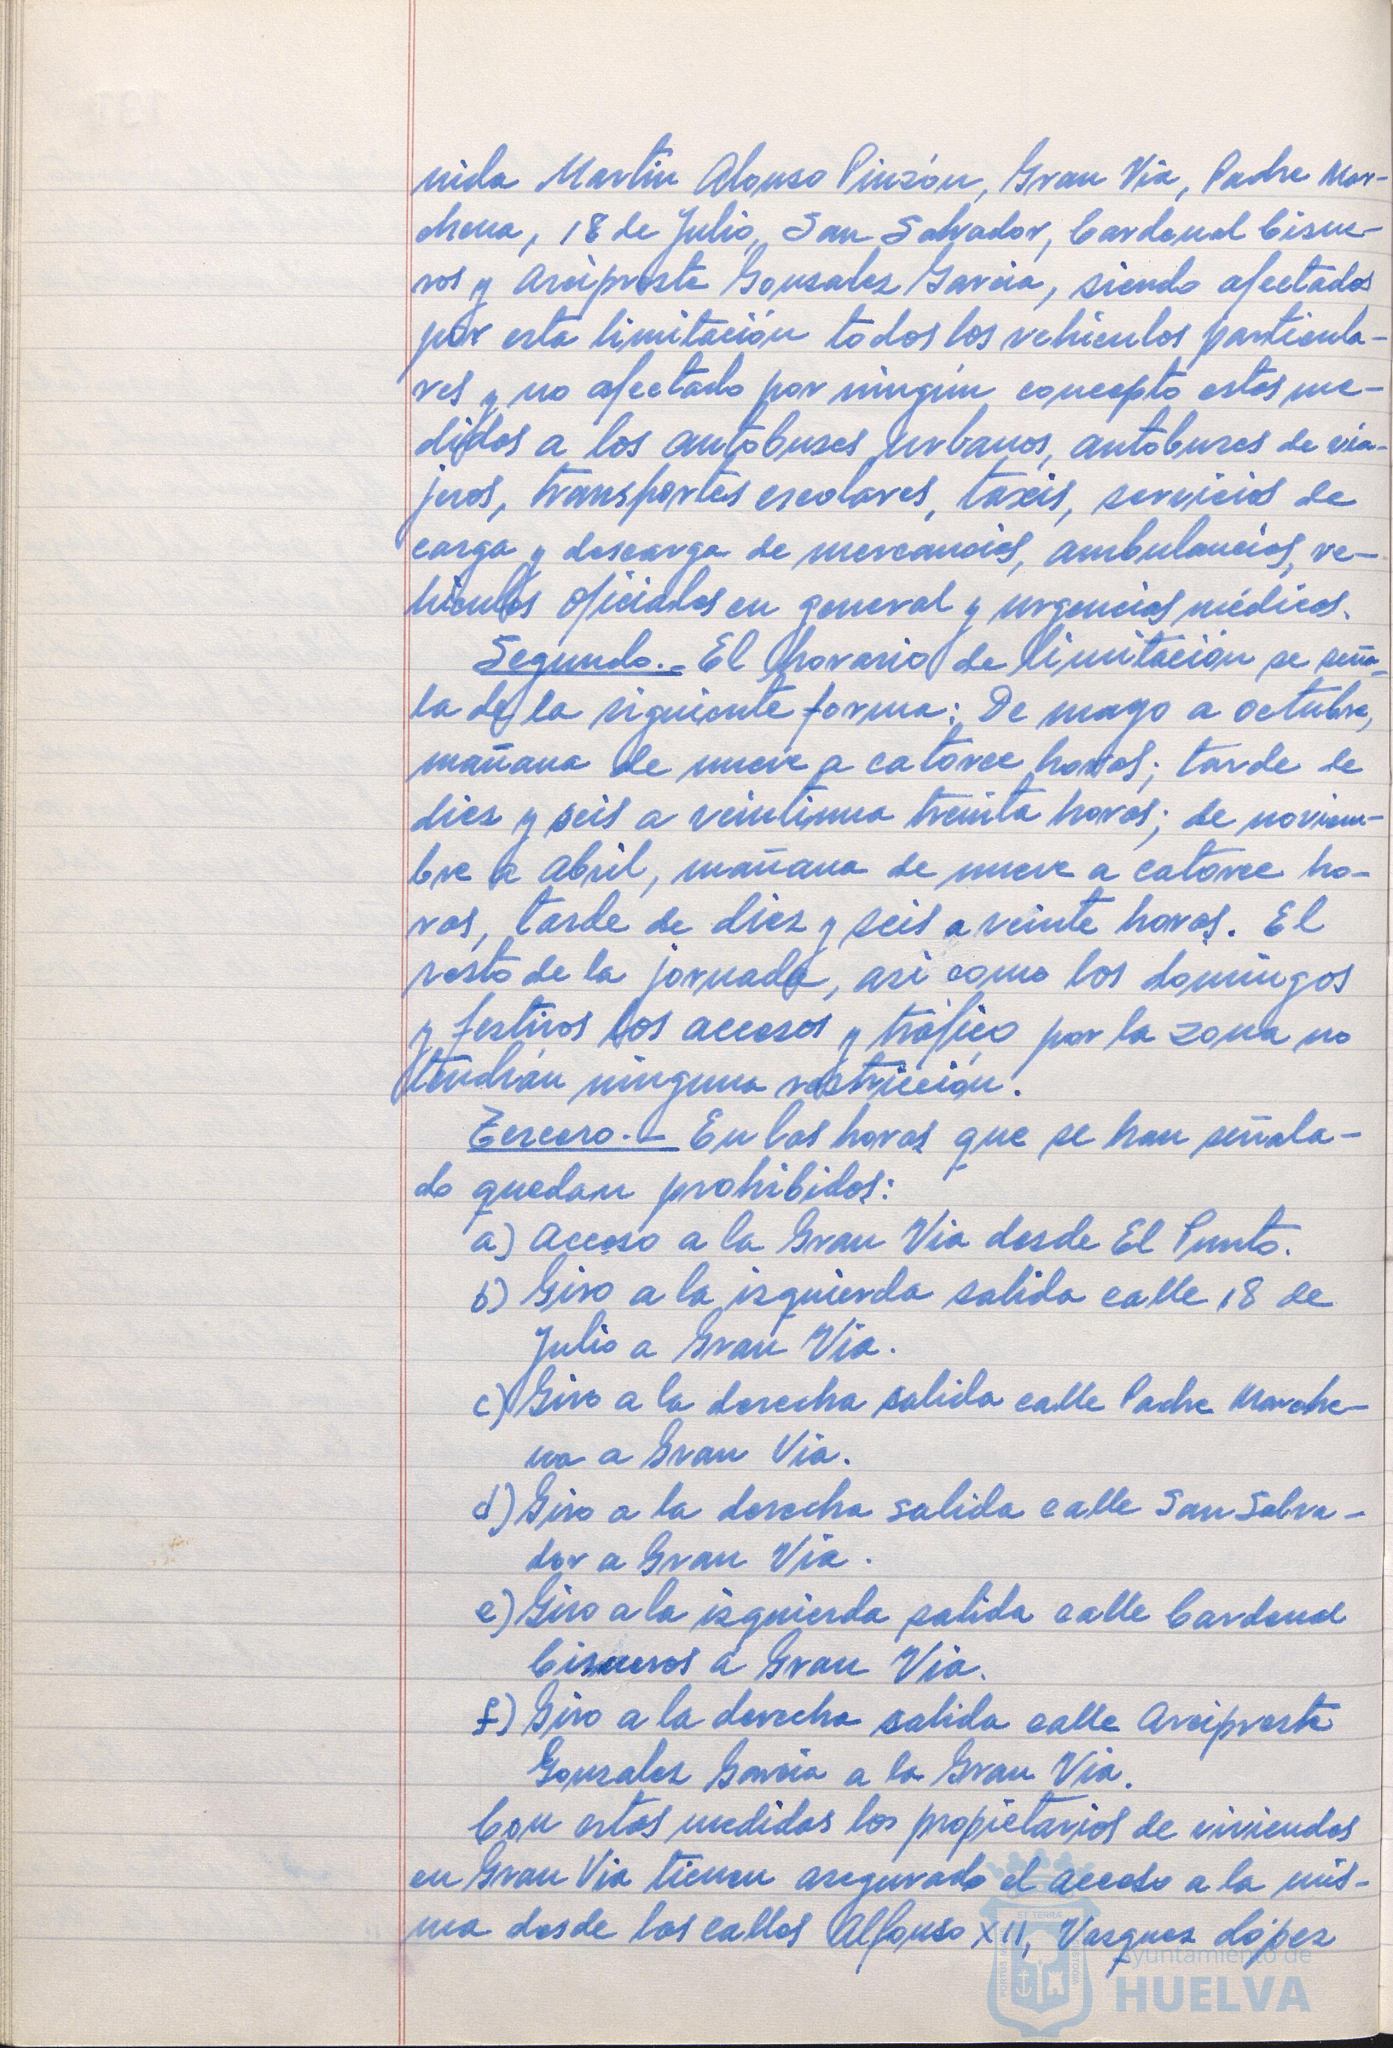 nida Martin Alonso Pinzón, Gran Via, Padre Mar-
chena, 18 de Julio, San Salvador, Cardenal Cisne-
ros y Arcipreste Gonzalez Garcia, siendo afectados
por esta limitación todos los vehiculos particula-
res y no afectado por ningún concepto estas me-
didas a los autobuses urbanos, autobuses de via-
jeros, transportes escolares, taxis, servicios de
carga y descarga de mercancias, ambulancias, ve-
hiculos oficiales en general y urgencias médicas.
Segundo.- El horario de limitación se seña-
la de la siguiente forma: De mayo a octubre,
mañana de nueve a catorce horas; tarde de
diez y seis a veintiuna treinta horas; de noviem-
bre a Abril, mañana de nueve a catorce ho-
ras, tarde de diez y seis a veinte horas. El
resto de la jornada, asi como los domingos
y festivos los accesos y tráfico por la zona no
tendrán ninguna restricción.
Tercero.- En las horas que se han señala-
do quedan prohibidos:
a) Acceso a la Gran Via desde El Punto.
b) Giro a la izquierda salida calle 18 de
Julio a Gran Via.
c) Giro a la derecha salida calle Padre Marche-
na a Gran Via.
d) Giro a la derecha salida calle San Salva-
dor a Gran Via.
e) Giro a la izquierda salida calle Cardenal
Cisneros a Gran Via.
f) Giro a la derecha salida calle Arcipreste
Gonzalez Garcia a la Gran Via.
Con estas medidas los propietarios de viviendas
en Gran Via tienen asegurado el acceso a la mis-
ma desde las calles Alfonso XII, Vazquez López
Ayuntamiento de
HUELVA